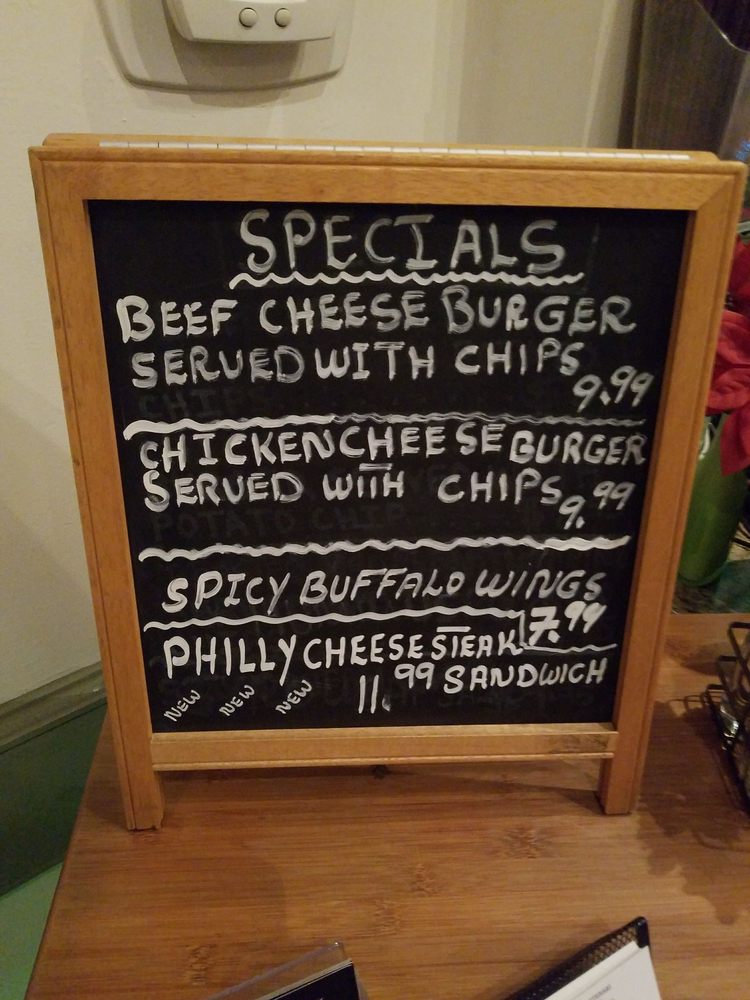 SPECIALS
BEEF CHEESE BURGER
SERVED WITH CHIPS
9.99
CHICKEN CHEESE BURGER
SERVED WITH CHIPS
9.99
SPICY BUFFALO WINGS
7.99
PHILLY CHEESE STEAK
11.99 SANDWICH
NEW NEW NEW